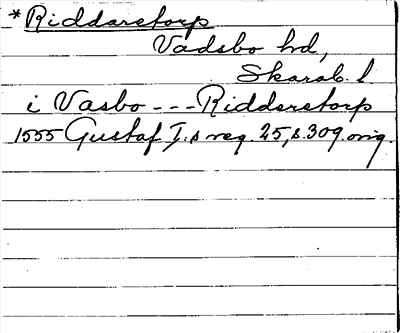 *Riddarstorp
Vadsbo hd,
Skarab. l
i Vasbo --- Riddarstorp
1555 Gustaf I:s reg. 25, s. 309. orig.